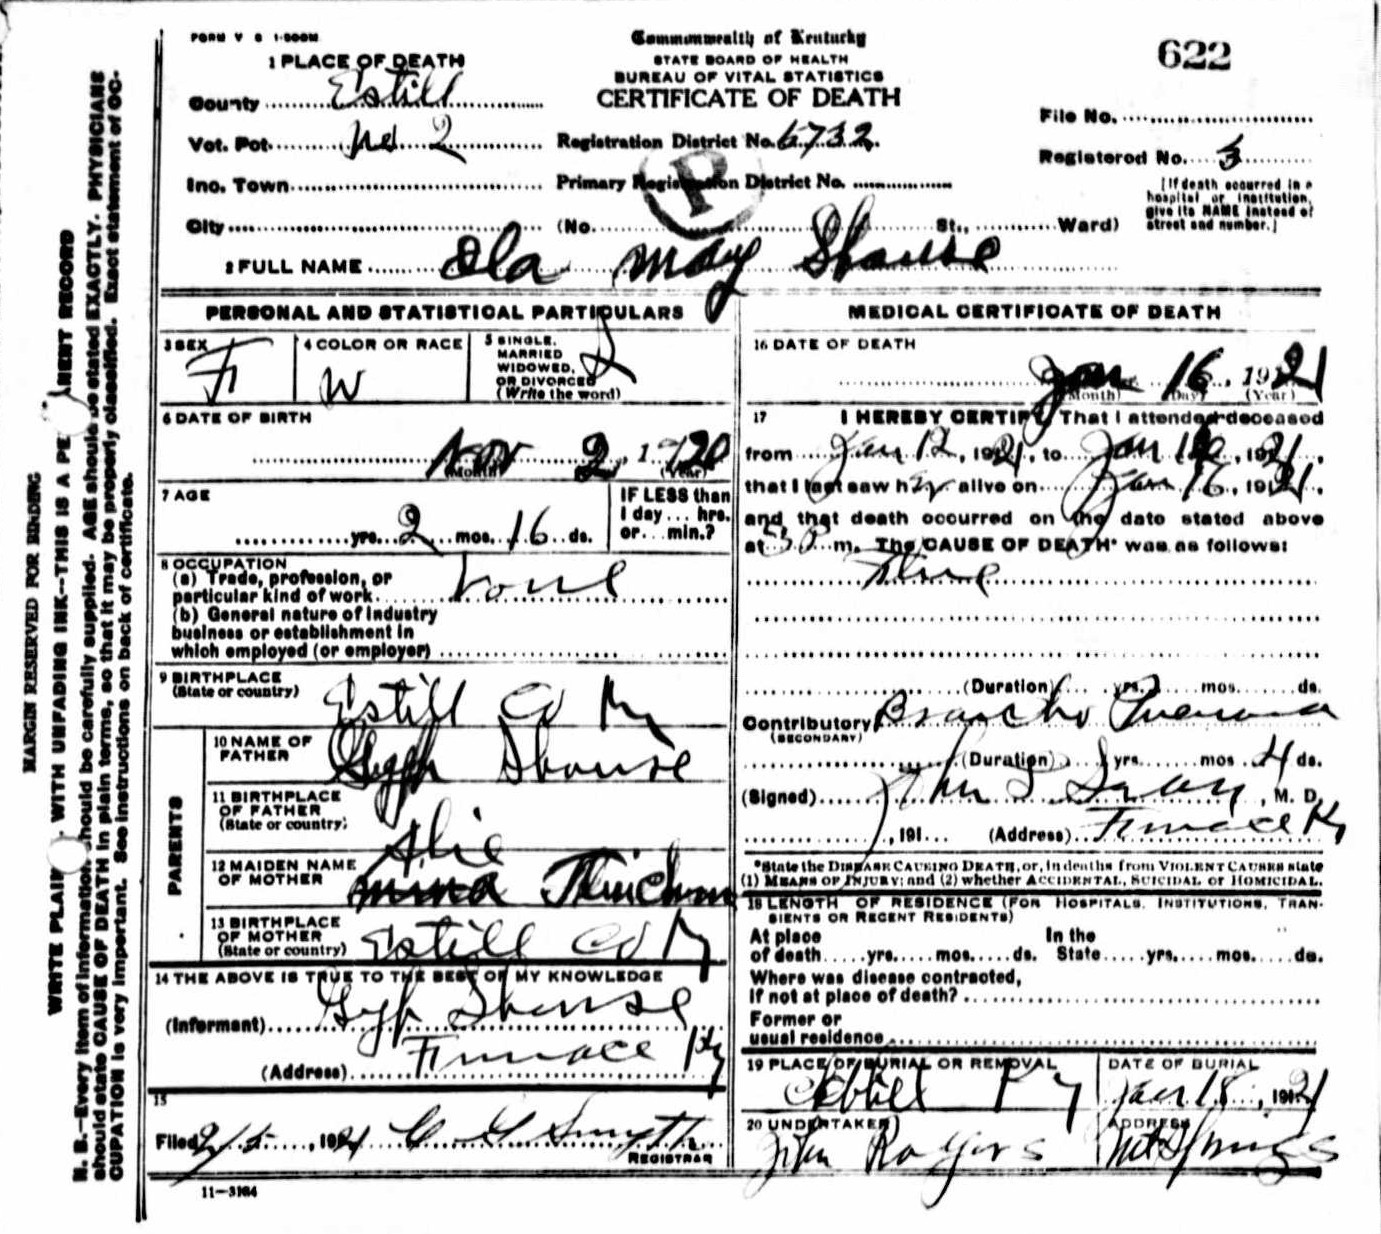 FORM V S 1-500M
Commonwealth of Kentucky
STATE BOARD OF HEALTH
BUREAU OF VITAL STATISTICS
CERTIFICATE OF DEATH
622
1 PLACE OF DEATH
County Estill
Vot. Pct. No 2
Inc. Town
City
Registration District No. 6732
Primary Registration District No.
P
(No. St., Ward)
File No.
Registered No. 5
[If death occurred in a
hospital or institution,
give its NAME instead of
street and number.]
2 FULL NAME Ola May Shouse
PERSONAL AND STATISTICAL PARTICULARS
3 SEX F
4 COLOR OR RACE W
5 SINGLE,
MARRIED
WIDOWED,
OR DIVORCED S
(Write the word)
6 DATE OF BIRTH
Nov 2, 1920
(Month) (Year)
7 AGE
yrs. 2 mos. 16 ds.
IF LESS than
1 day... hrs.
or... min.?
8 OCCUPATION
(a) Trade, profession, or
particular kind of work None
(b) General nature of industry
business or establishment in
which employed (or employer)
9 BIRTHPLACE
(State or country) Estill Co Ky
PARENTS
10 NAME OF
FATHER Shouse
11 BIRTHPLACE
OF FATHER
(State or country)
12 MAIDEN NAME
OF MOTHER
13 BIRTHPLACE
OF MOTHER
(State or country) Estill Co Ky
14 THE ABOVE IS TRUE TO THE BEST OF MY KNOWLEDGE
(Informant) Shouse
(Address) Furnace Ky
15
Filed 2/5, 1921 Smyth
REGISTRAR
11-3184
MEDICAL CERTIFICATE OF DEATH
16 DATE OF DEATH
Jan 16, 1921
(Month) (Day) (Year)
17 I HEREBY CERTIFY, That I attended deceased
from Jan 12, 1921, to Jan 16, 1921,
that I last saw her alive on Jan 16, 1921,
and that death occurred on the date stated above
at 3 P m. The CAUSE OF DEATH* was as follows:
(Duration) yrs. mos. ds.
Contributory Broncho Pneumonia
(SECONDARY)
(Duration) yrs. mos 4 ds.
(Signed) John, M. D.
, 191... (Address) Furnace Ky
*State the DISEASE CAUSING DEATH, or, in deaths from VIOLENT CAUSES state
(1) MEANS OF INJURY; and (2) whether ACCIDENTAL, SUICIDAL or HOMICIDAL.
18 LENGTH OF RESIDENCE (FOR HOSPITALS, INSTITUTIONS, TRAN-
SIENTS OR RECENT RESIDENTS)
At place
of death yrs. mos. ds.
In the
State yrs. mos. ds.
Where was disease contracted,
If not at place of death?
Former or
usual residence
19 PLACE OF BURIAL OR REMOVAL
Ky
DATE OF BURIAL
Jan 18, 1921
20 UNDERTAKER
John Rodgers
ADDRESS
Mt Springs
MARGIN RESERVED FOR BINDING
WRITE PLAINLY WITH UNFADING INK--THIS IS A PERMANENT RECORD
N. B.--Every item of information should be carefully supplied. AGE should be stated EXACTLY. PHYSICIANS
should state CAUSE OF DEATH in plain terms, so that it may be properly classified. Exact statement of OC-
CUPATION is very important. See instructions on back of certificate.